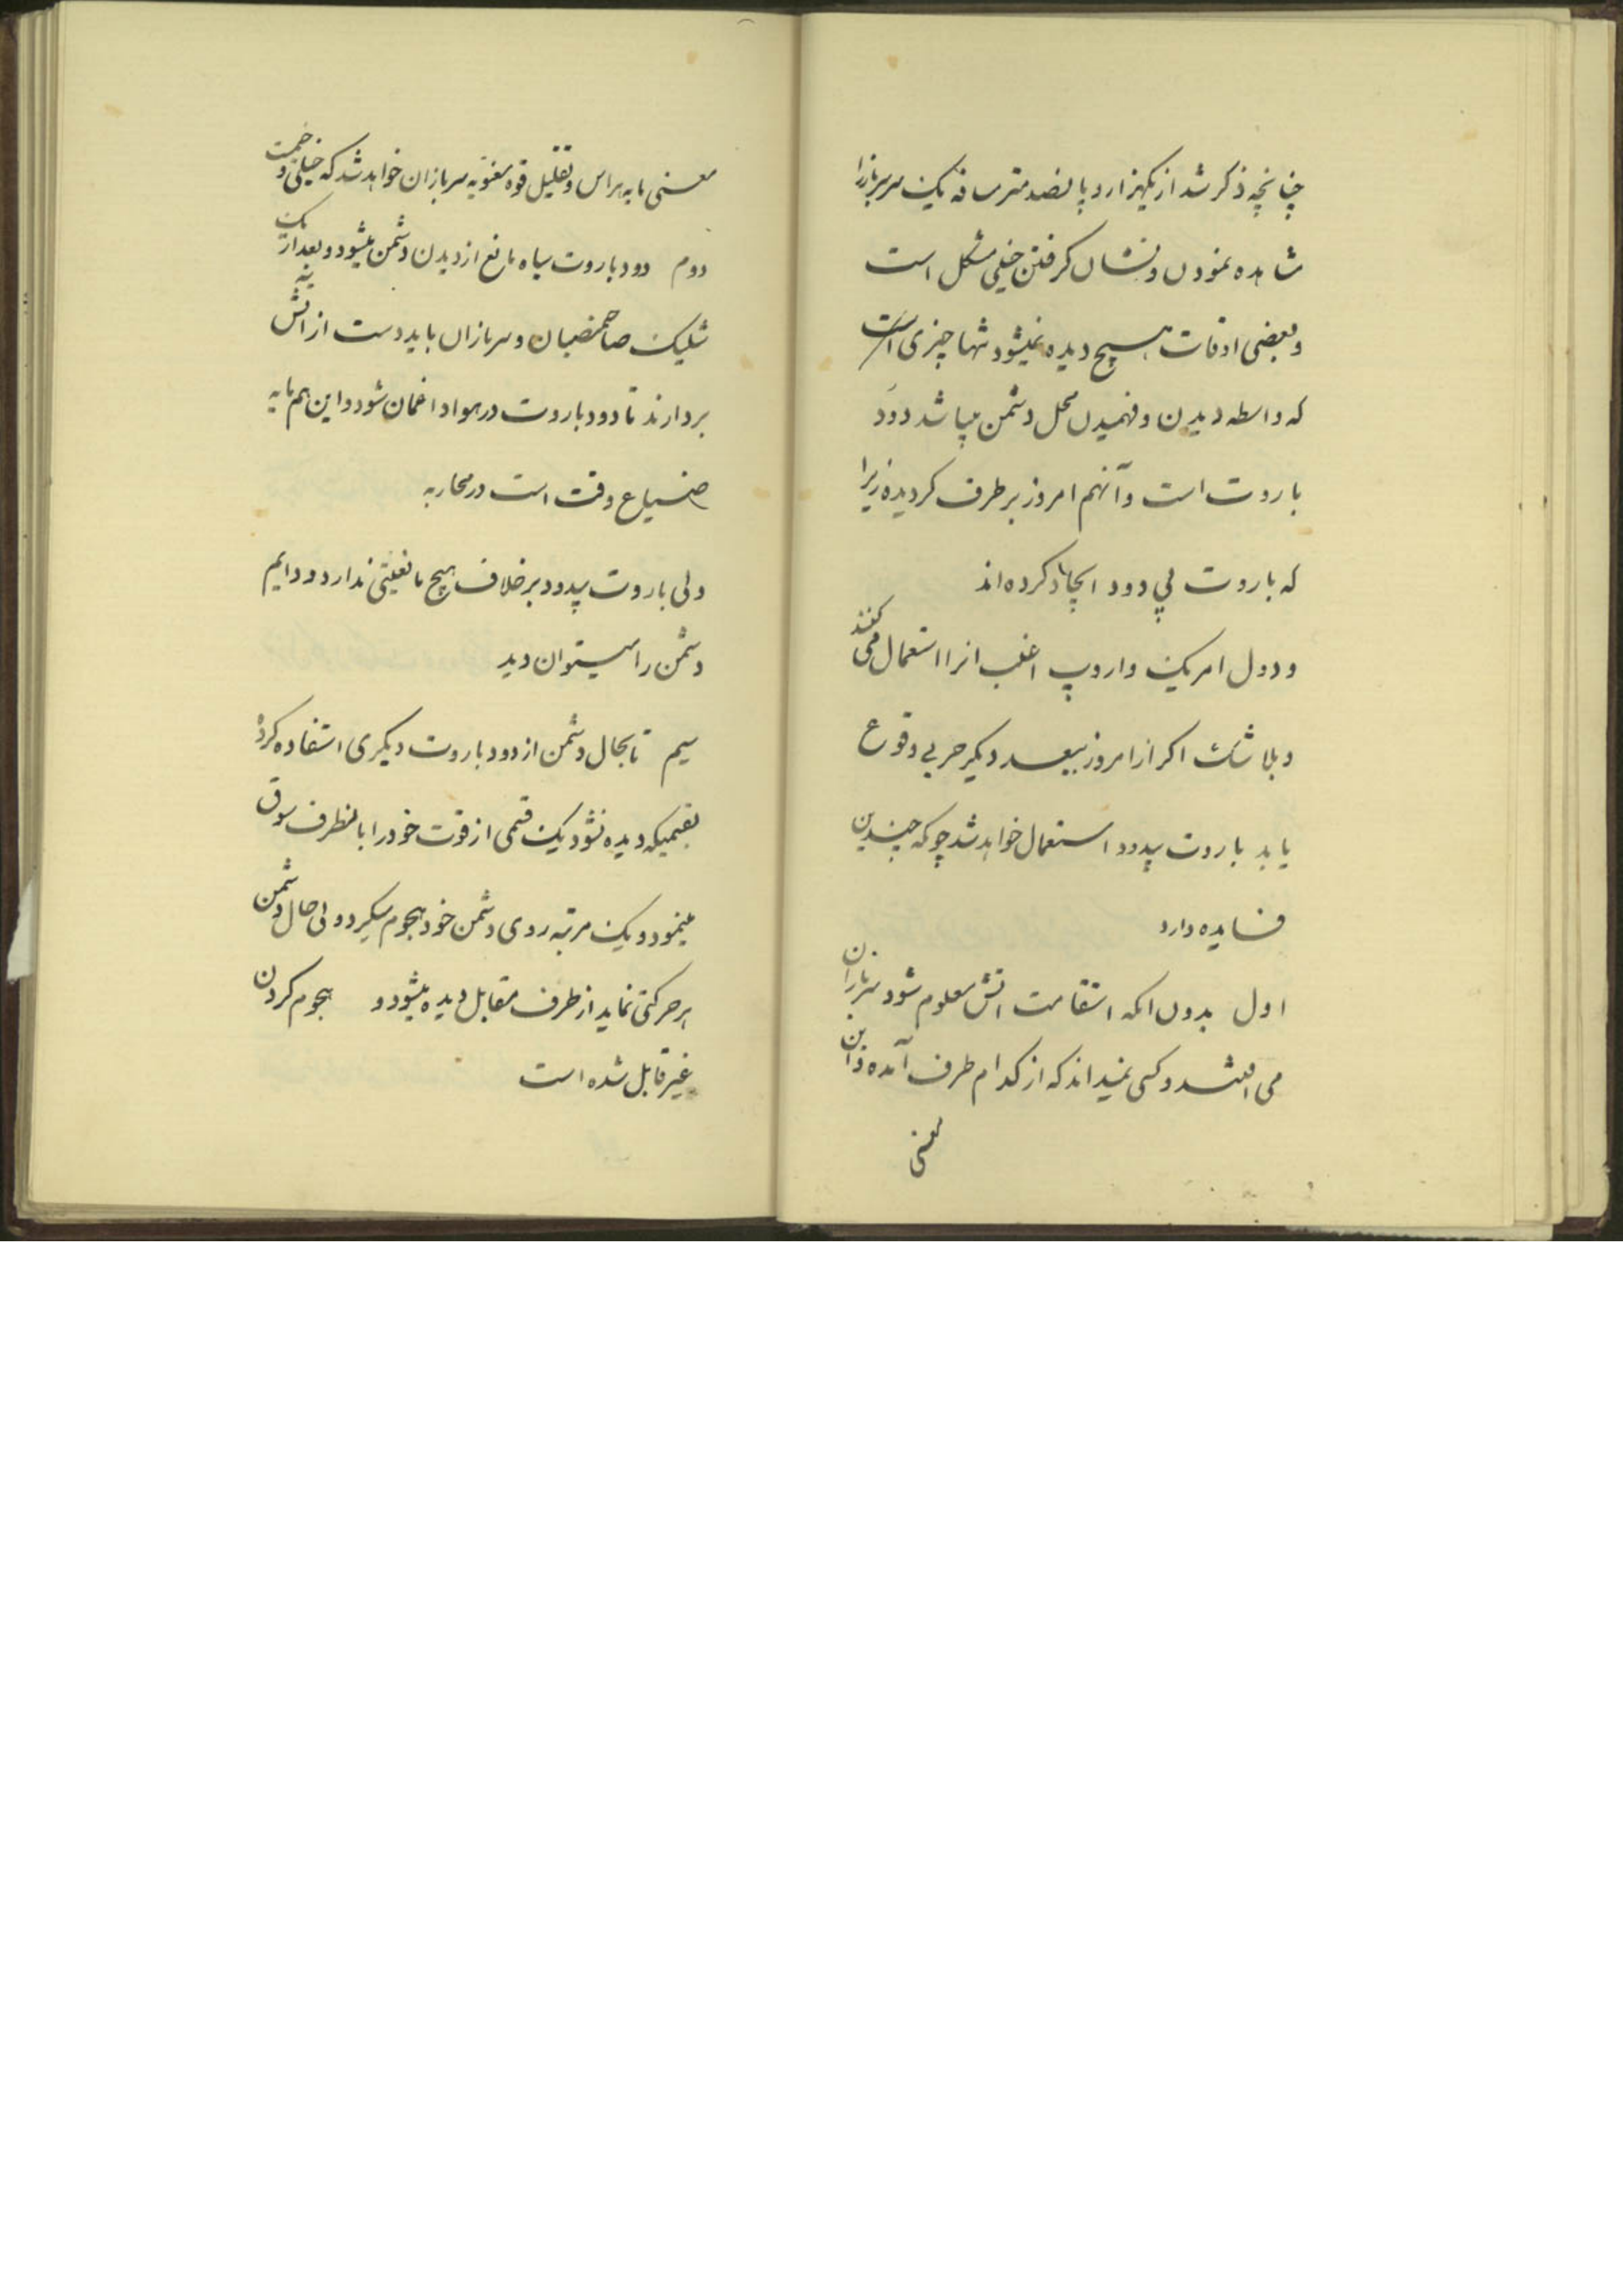 چنانچه ذکر شد از یکهزار و پانصد متر مسافه یک سرباز را
مشاهده نمودن و نشان کرفتن خیلی مشکل است
و بعضی اوقات هیچ دیده نمیشود تنها چیزی است
که واسطه دیدن و فهمیدن محل دشمن میباشد دود
باروت است و آنهم امروز بر طرف کردیده زیرا
که باروت بی دود ایجاد کرده اند
و دول امریک و اروپ اغلب انرا استعمال می کنند
و بلا شک اکر از امروز ببعد دیکر حربی وقوع
یابد باروت بیدود استعمال خواهد شد چونکه چندین
فایده دارد
اول بدون انکه استقامت اتش معلوم شود سربازان
می افتند و کسی نمیداند که از کدام طرف آمده و این
معنی
معنی مایه هراس و تقلیل قوه معنویه سربازان خواهد شد که خیلی وخیمست
دوم دود باروت سیاه مانع از دیدن دشمن میشود و بعد از یک
شلیک صاحمنصبان و سربازان باید دست از اتش
بردارند تا دود باروت در هوا داغمان شود و این هم مایه
ضیاع وقت است در محاربه
ولی باروت بیدود برخلاف هیچ مانعیتی ندارد و دایم
دشمن را میتوان دید
سیم تا بحال دشمن از دود باروت دیکری استفاده کرده
بقسمیکه دیده نشود یک قسمی از قوت خود را بانطرف سوق
مینمود و یک مرتبه روی دشمن خود هجوم میکرد ولی حال دشمن
هر حرکتی نماید از طرف مقابل دیده میشود و هجوم کردن
غیر قابل شده است